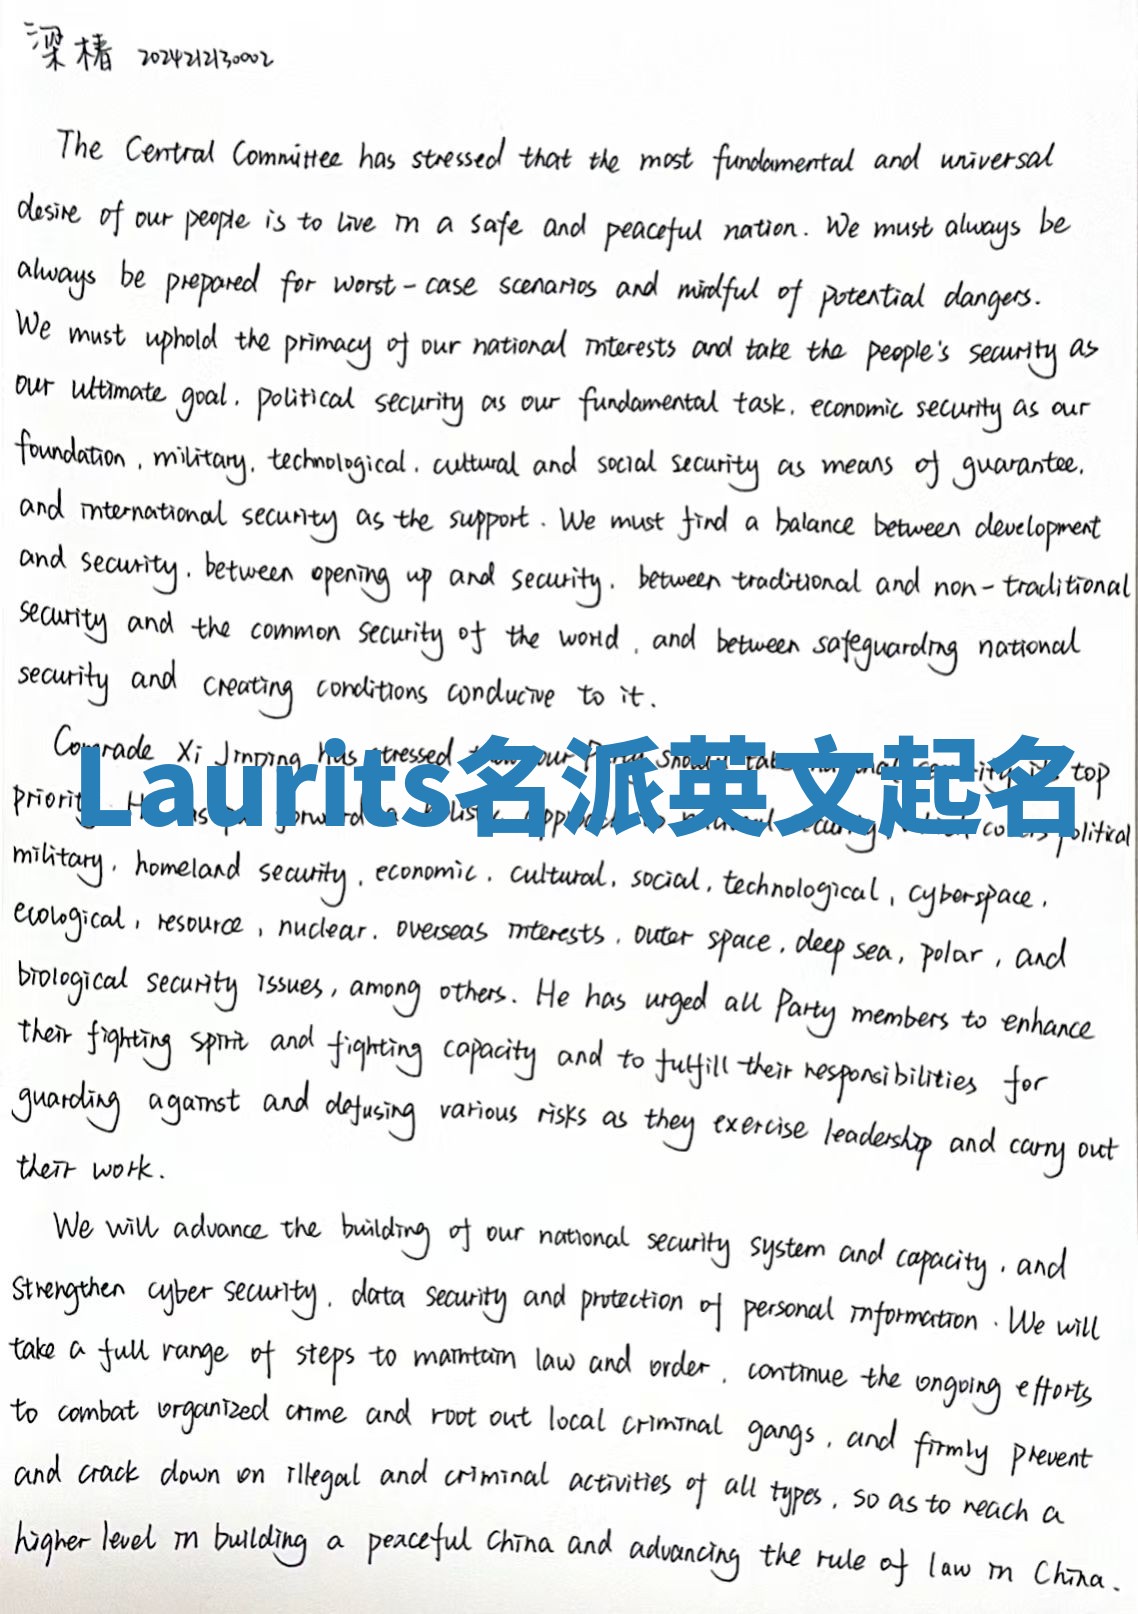 梁椿 2024212130002
The Central Committee has stressed that the most fundamental and universal
desire of our people is to live in a safe and peaceful nation. We must always be
always be prepared for worst-case scenarios and mindful of potential dangers.
We must uphold the primacy of our national interests and take the people's security as
our ultimate goal, political security as our fundamental task, economic security as our
foundation, military, technological, cultural and social security as means of guarantee,
and international security as the support. We must find a balance between development
and security, between opening up and security, between traditional and non-traditional
security and the common security of the world, and between safeguarding national
security and creating conditions conducive to it.
Comrade Xi Jinping has stressed our top
Laurits名派英文起名
political
military, homeland security, economic, cultural, social, technological, cyberspace,
ecological, resource, nuclear, overseas interests, outer space, deep sea, polar, and
biological security issues, among others. He has urged all Party members to enhance
their fighting spirit and fighting capacity and to fulfill their responsibilities for
guarding against and defusing various risks as they exercise leadership and carry out
their work.
We will advance the building of our national security system and capacity, and
strengthen cyber security, data security and protection of personal information. We will
take a full range of steps to maintain law and order, continue the ongoing efforts
to combat organized crime and root out local criminal gangs, and firmly prevent
and crack down on illegal and criminal activities of all types, so as to reach a
higher level in building a peaceful China and advancing the rule of law in China.